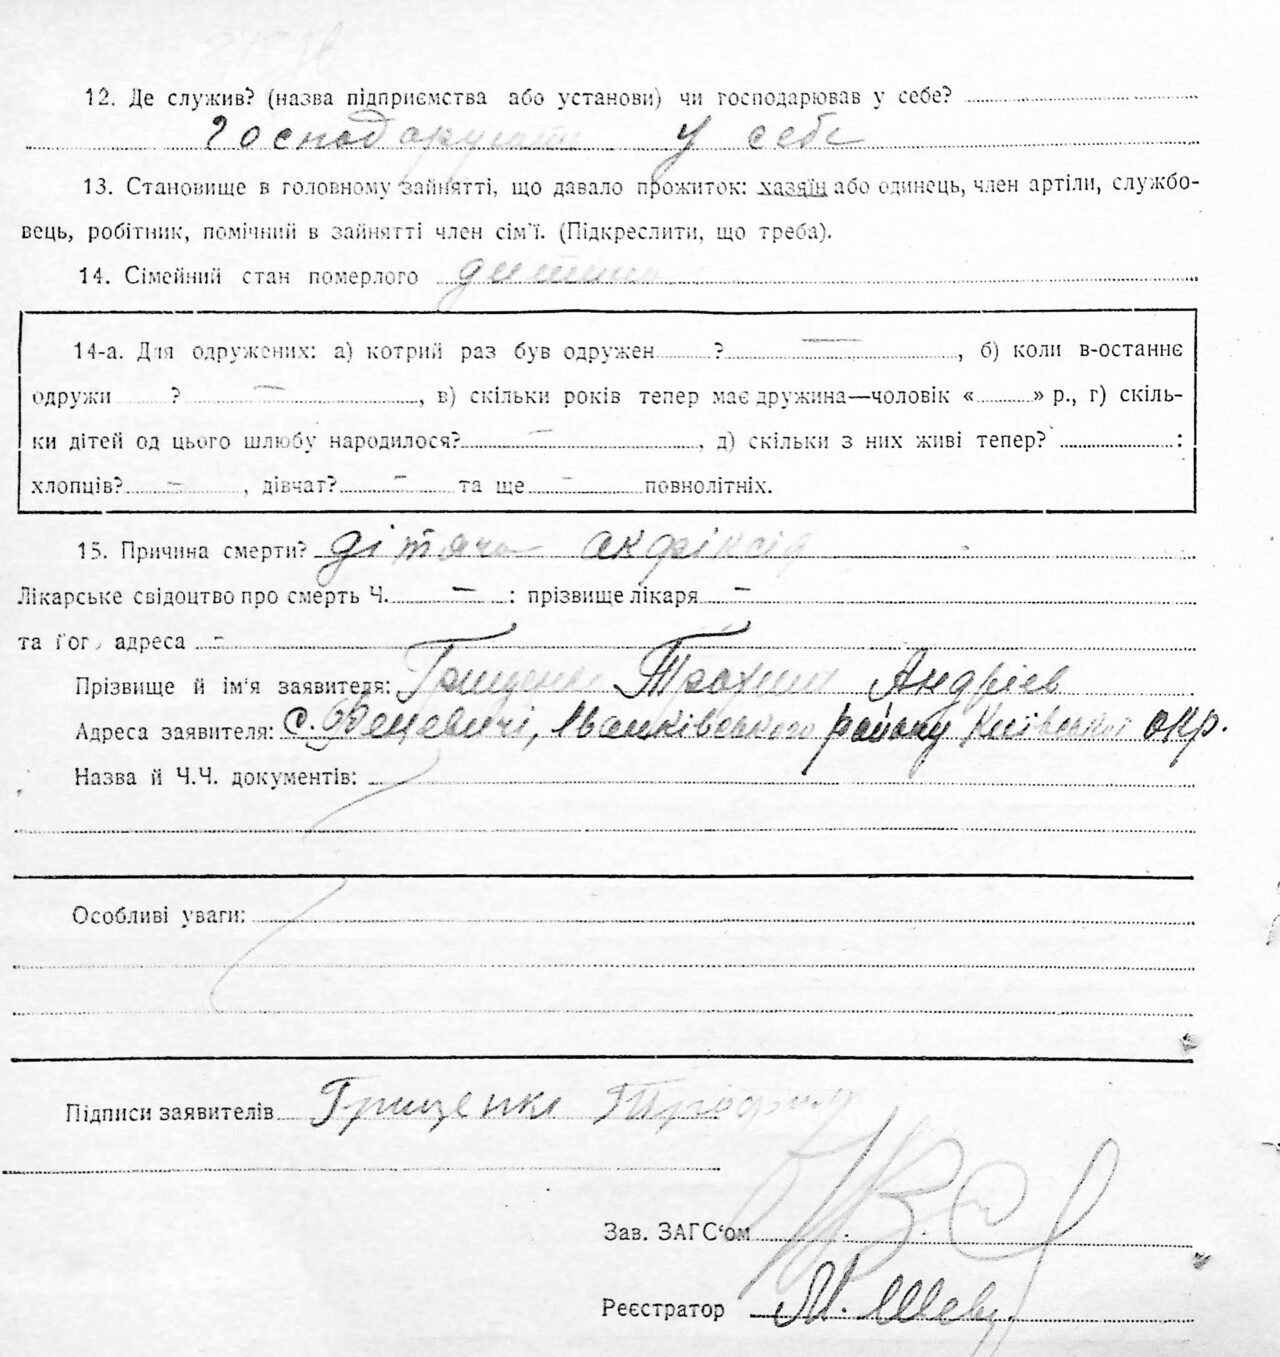 12. Де служив? (назва підприємства або установи) чи господарював у себе?
у себе
13. Становище в головному зайнятті, що давало прожиток: хазяїн або одинець, член артіли, службо-
вець, робітник, помічний в зайнятті член сім'ї. (Підкреслити, що треба).
14. Сімейний стан померлого дитина
14-а. Для одружених: а) котрий раз був одружен ? — , б) коли в-останнє
одружи ? — , в) скільки років тепер має дружина—чоловік « » р., г) скіль-
ки дітей од цього шлюбу народилося? — , д) скільки з них живі тепер? :
хлопців? — , дівчат? — та ще — повнолітніх.
15. Причина смерти? дітяча акфіксія
Лікарське свідоцтво про смерть Ч. — : прізвище лікаря —
та адреса —
Прізвище й ім'я заявителя: Грищенко Трохим Андріев
Адреса заявителя: с. Іванківського району Київської окр.
Назва й Ч.Ч. документів:
Особливі уваги:
Підписи заявителів Грищенко
Зав. ЗАГС'ом
Реєстратор М. Шевц